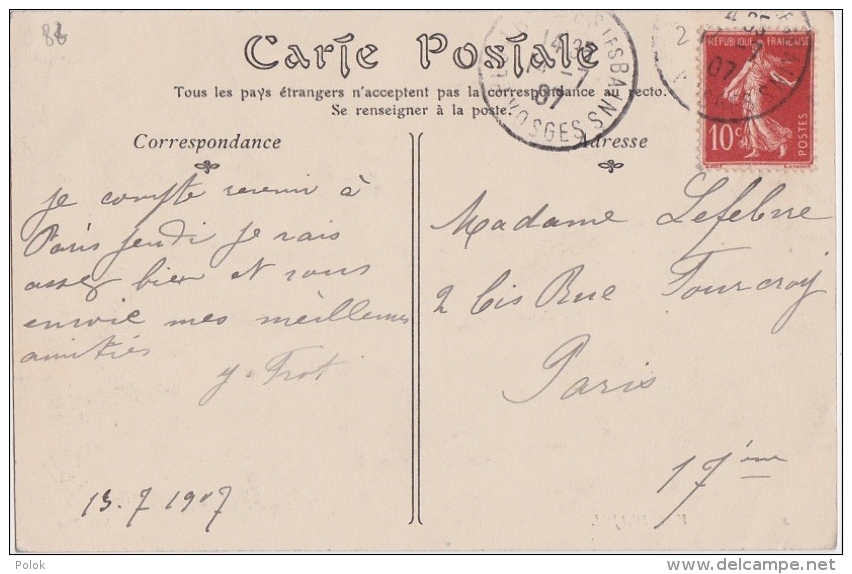 88
Carte Postale
Tous les pays étrangers n'acceptent pas la correspondance au recto.
Se renseigner à la poste.
Correspondance
Adresse
14 35
-7
07
VOSGES
RÉPUBLIQUE FRANÇAISE
10c
POSTES
je compte revenir à
Paris jeudi je vais
assez bien et vous
envoie mes meilleures
amitiés
y. Frot
13.7 1907
Madame Lefebvre
2 bis Rue Fourcroy
Paris
17ème
Polok
delcampe.net